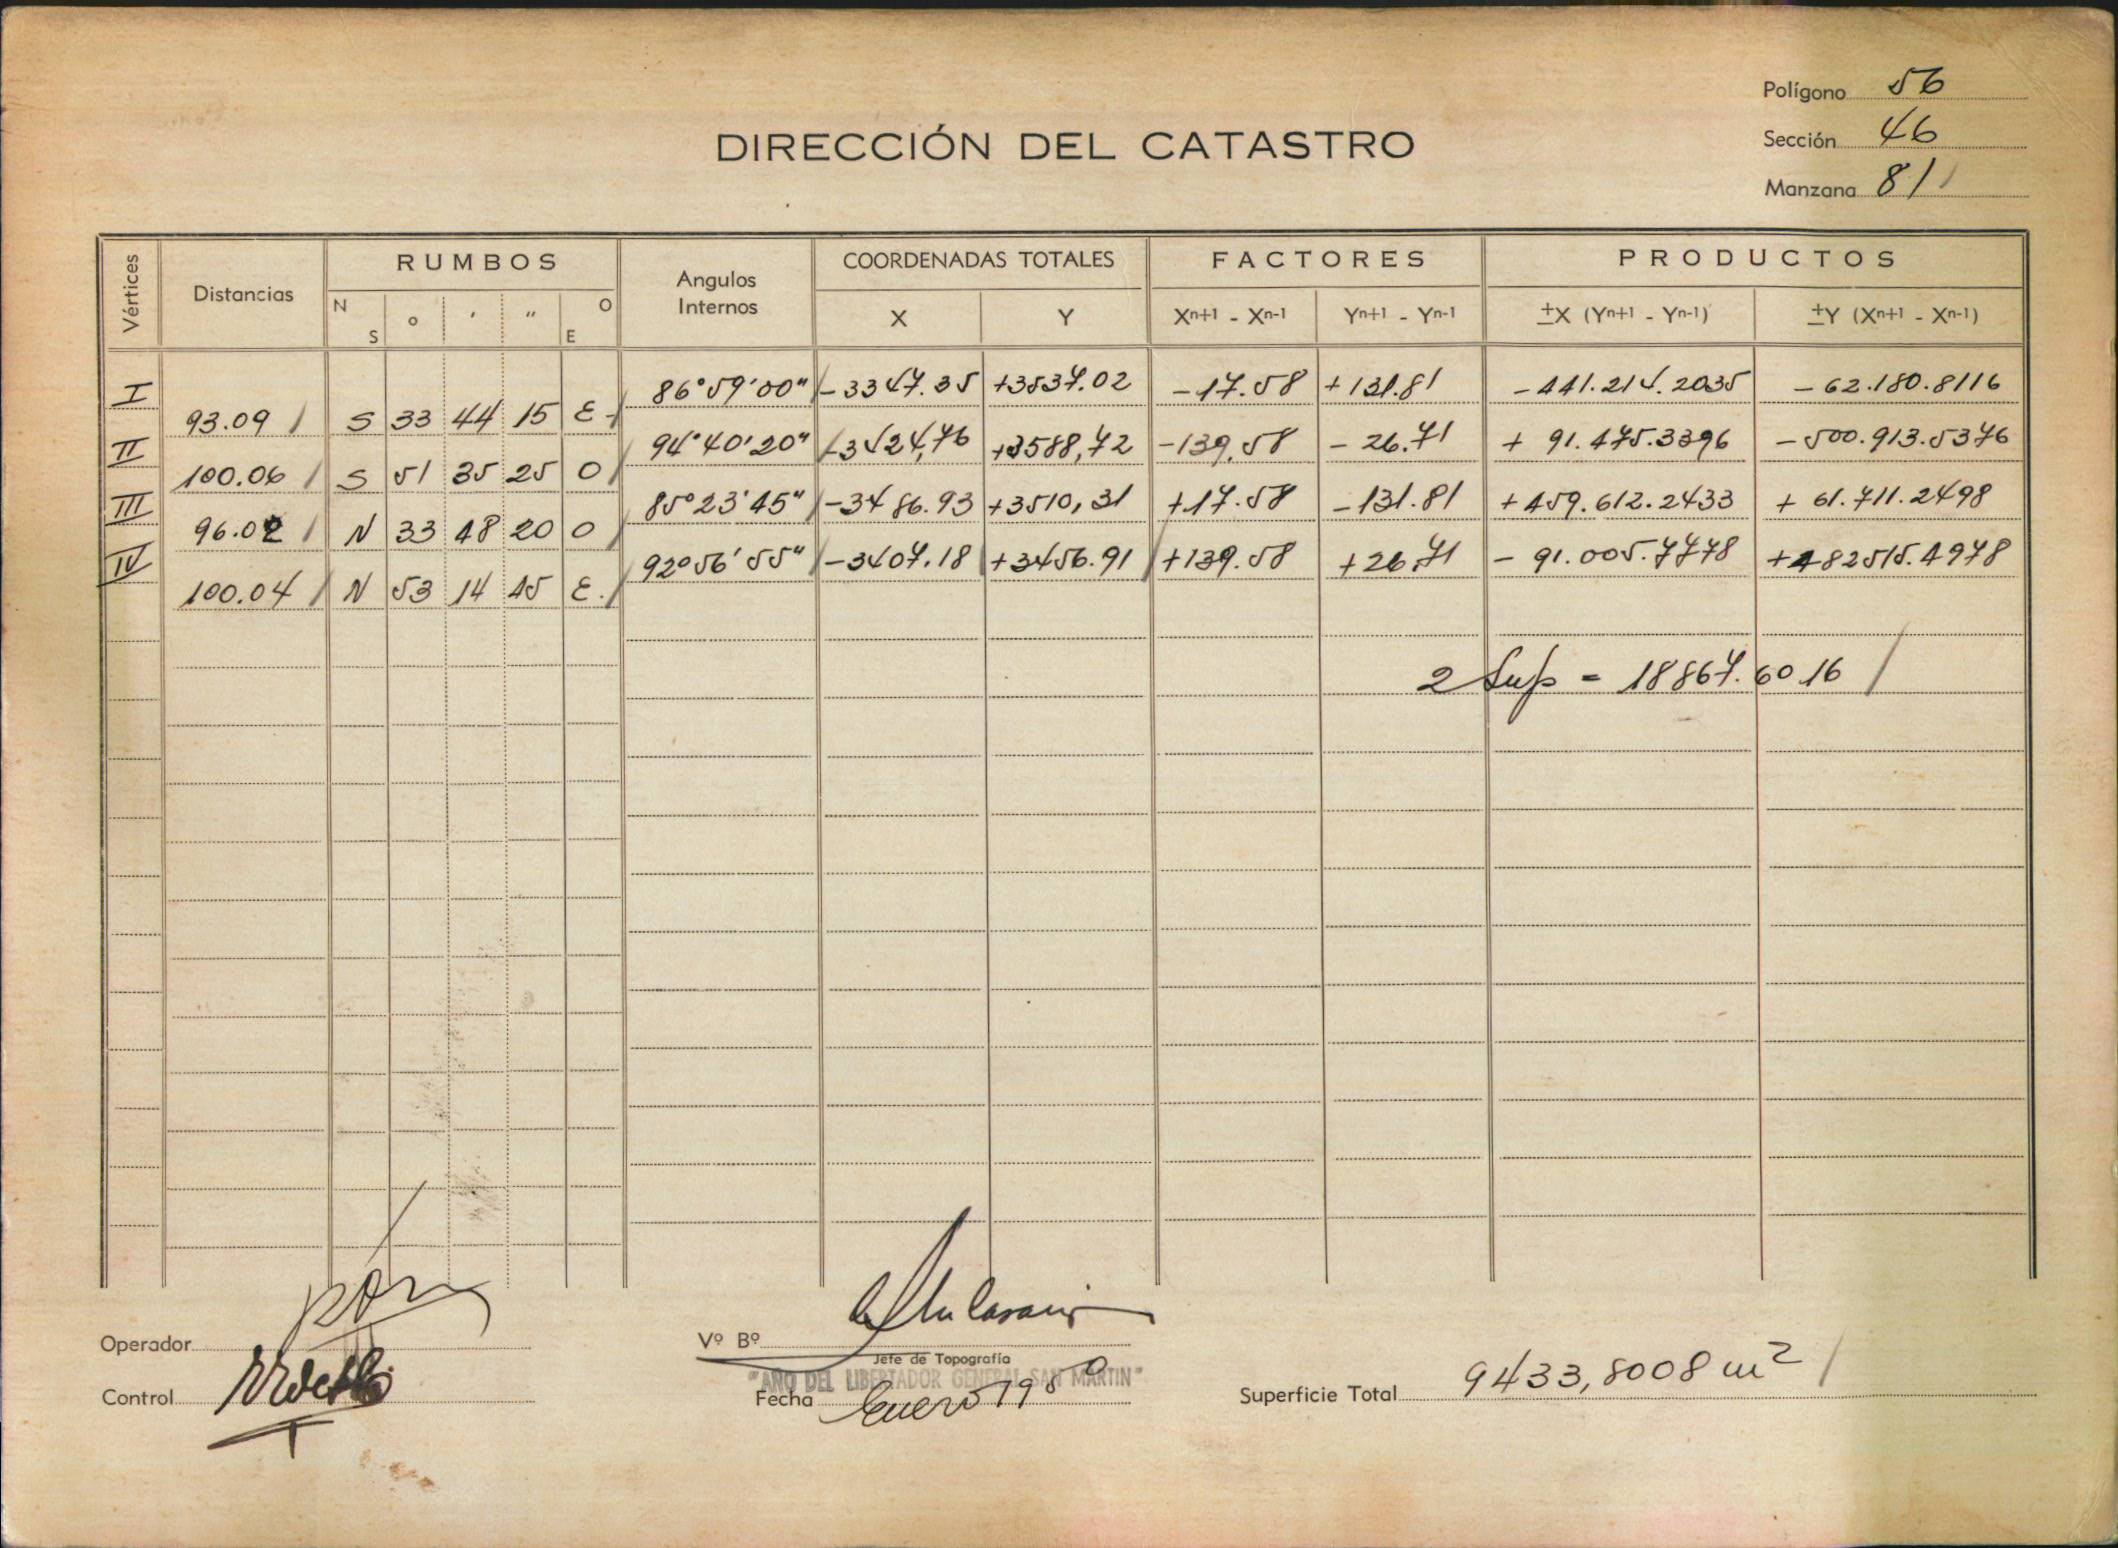 Polígono 56
DIRECCIÓN DEL CATASTRO
Sección 46
Manzana 81
Vértices Distancias RUMBOS Angulos Internos COORDENADAS TOTALES FACTORES PRODUCTOS
N S ° ' " O E X Y Xn+1 - Xn-1 Yn+1 - Yn-1 ±X (Yn+1 - Yn-1) ±Y (Xn+1 - Xn-1)
I 86°59'00" -3347.35 +3537.02 -17.58 +131.81 -441.214.2035 -62.180.8116
93.09 S 33 44 15 E
II 94°40'20" -3424,76 +3588,72 -139.58 -26.71 +91.475.3396 -500.913.5376
100.06 S 51 35 25 O
III 85°23'45" -3486.93 +3510,31 +17.58 -131.81 +459.612.2433 +61.711.2498
96.02 N 33 48 20 O
IV 92°56'55" -3407.18 +3456.91 +139.58 +26.71 -91.005.7778 +482515.4978
100.04 N 53 14 45 E.
2 Sup = 18867.6016
Operador
Vº Bº
Jefe de Topografía
"AÑO DEL LIBERTADOR GENERAL SAN MARTIN"
Control
Fecha Enero 1950
Superficie Total 9433,8008 m2